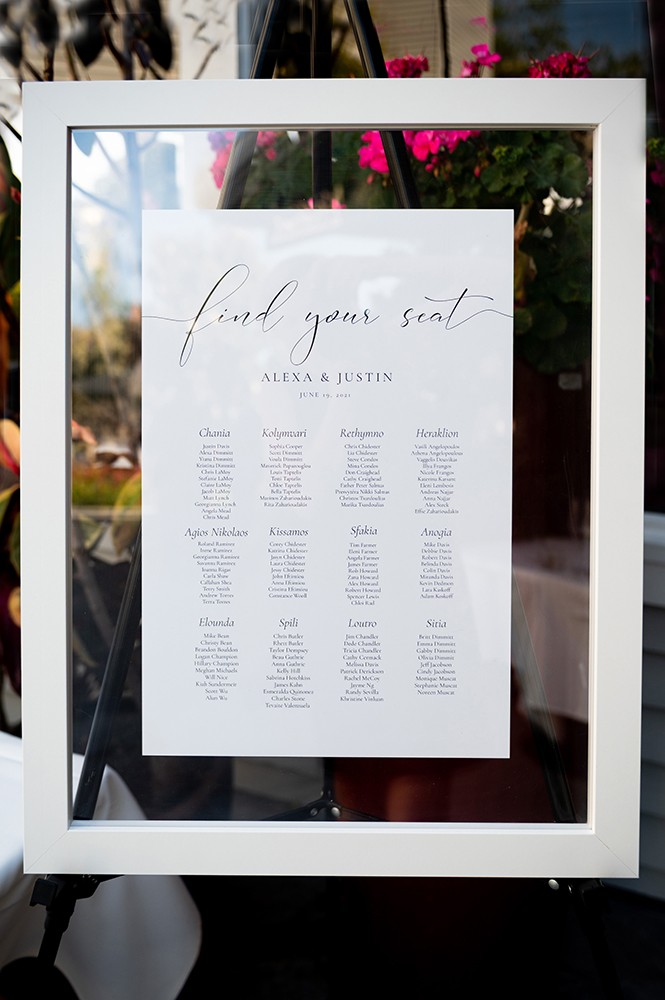 find your seat
ALEXA & JUSTIN
JUNE 19, 2021
Chania
Justin Davis
Alexa Dimmitt
Yvana Dimmitt
Kristina Dimmitt
Chris LaMoy
Stefanie LaMoy
Claire LaMoy
Jacob LaMoy
Matt Lynch
Georgianna Lynch
Angela Mead
Chris Mead
Kolymvari
Sophia Cooper
Steve Dimmitt
Voula Dimmitt
Maverick Papanicolas
Louis Taptelis
Toni Taptelis
Chloe Taptelis
Bella Taptelis
Manteen Zaharioudakis
Rita Zaharioudakis
Rethymno
Chris Chidester
Lia Chidester
Steve Condos
Mina Condos
Don Craighead
Cathy Craighead
Father Peter Salmas
Presvytera Nikki Salmas
Christos Tsardoulias
Marika Tsardoulias
Heraklion
Vasili Angelopoulos
Athena Angelopoulos
Vaggelis
Illya Frangos
Nicole Frangos
Katerina Karsant
Eleni Lambosis
Andreas Najjar
Anna Najjar
Alex Sirek
Effie Zaharioudakis
Agios Nikolaos
Roland Ramirez
Torne Ramirez
Georgianna Ramirez
Savanna Ramirez
Joanna Rigas
Carla Shaw
Callahan Silva
Terry Smith
Andrew Torres
Terra Torres
Kissamos
Corey Chidester
Katrina Chidester
Jason Chidester
Laura Chidester
Josie Chidester
John Efimiou
Anna Efimiou
Cristina Efimiou
Constance Woolf
Sfakia
Tim Farmer
Eleni Farmer
Angela Farmer
James Farmer
Rob Howard
Zana Howard
Alex Howard
Robert Howard
Spencer Lewis
Chloe Rad
Anogia
Mike Davis
Debbie Davis
Robert Davis
Belinda Davis
Colin Davis
Miranda Davis
Kevin Dedmon
Lara Kaskoff
Adam Kaskoff
Elounda
Mike Bean
Christy Bean
Brandon Bouldon
Logan Champion
Hillary Champion
Meghan Michaels
Will Nice
Kish Sundermeit
Scott Wu
Alan Wu
Spili
Chris Butler
Rhett Butler
Taylor Dempsey
Beau Guthrie
Anna Guthrie
Kelly Hill
Sabrina Hotchkiss
James Kahn
Esmeralda Quinonez
Charles Stone
Tevaite Valenzuela
Loutro
Jim Chandler
Dede Chandler
Tricia Chandler
Cathy Cormack
Melissa Davis
Patrick Derickson
Rachel McCoy
Jirene Ng
Randy Sevilla
Khristine Vinluan
Sitia
Britt Dimmitt
Emma Dimmitt
Gabby Dimmitt
Olivia Dimmitt
Jeff Jacobson
Cindy Jacobson
Monique Muscat
Stephanie Muscat
Noreen Muscat